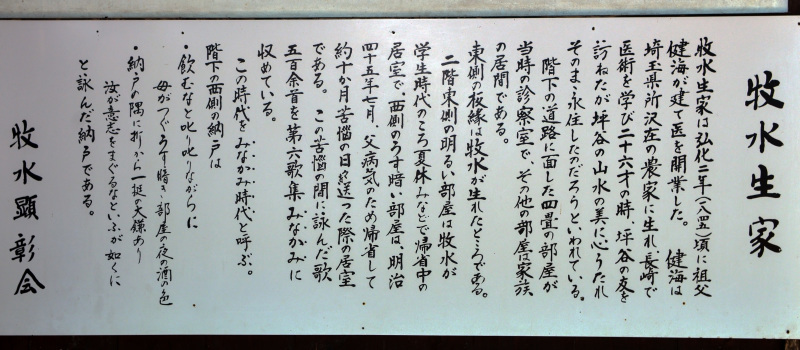 牧水生家
牧水生家は弘化二年(一八四五)頃に祖父
健海が建て医を開業した。 健海は
埼玉県所沢在の農家に生れ長崎で
医術を学び二十六才の時、坪谷の友を
訪ねたが坪谷の山水の美に心うたれ
そのまゝ永住したのだろうといわれている。
階下の道路に面した四畳の部屋が
当時の診察室で、その他の部屋は家族
の居間である。
東側の板縁は牧水が生れたところである。
二階東側の明るい部屋は牧水が
学生時代のころ夏休みなどで帰省中の
居室で、西側のうす暗い部屋は、明治
四十五年七月、父病気のため帰省して
約十か月苦悩の日を送った際の居室
である。この苦悩の間に詠んだ歌
五百余首を第六歌集みなかみに
収めている。
この時代をみなかみ時代と呼ぶ。
階下の西側の納戸は
・飲むなと叱り叱りながらに
母がつぐうす暗き部屋の夜の酒の色
・納戸の隅に折から一挺の大鎌あり
汝が意志をまぐるなといふが如くに
と詠んだ納戸である。
牧水顕彰会